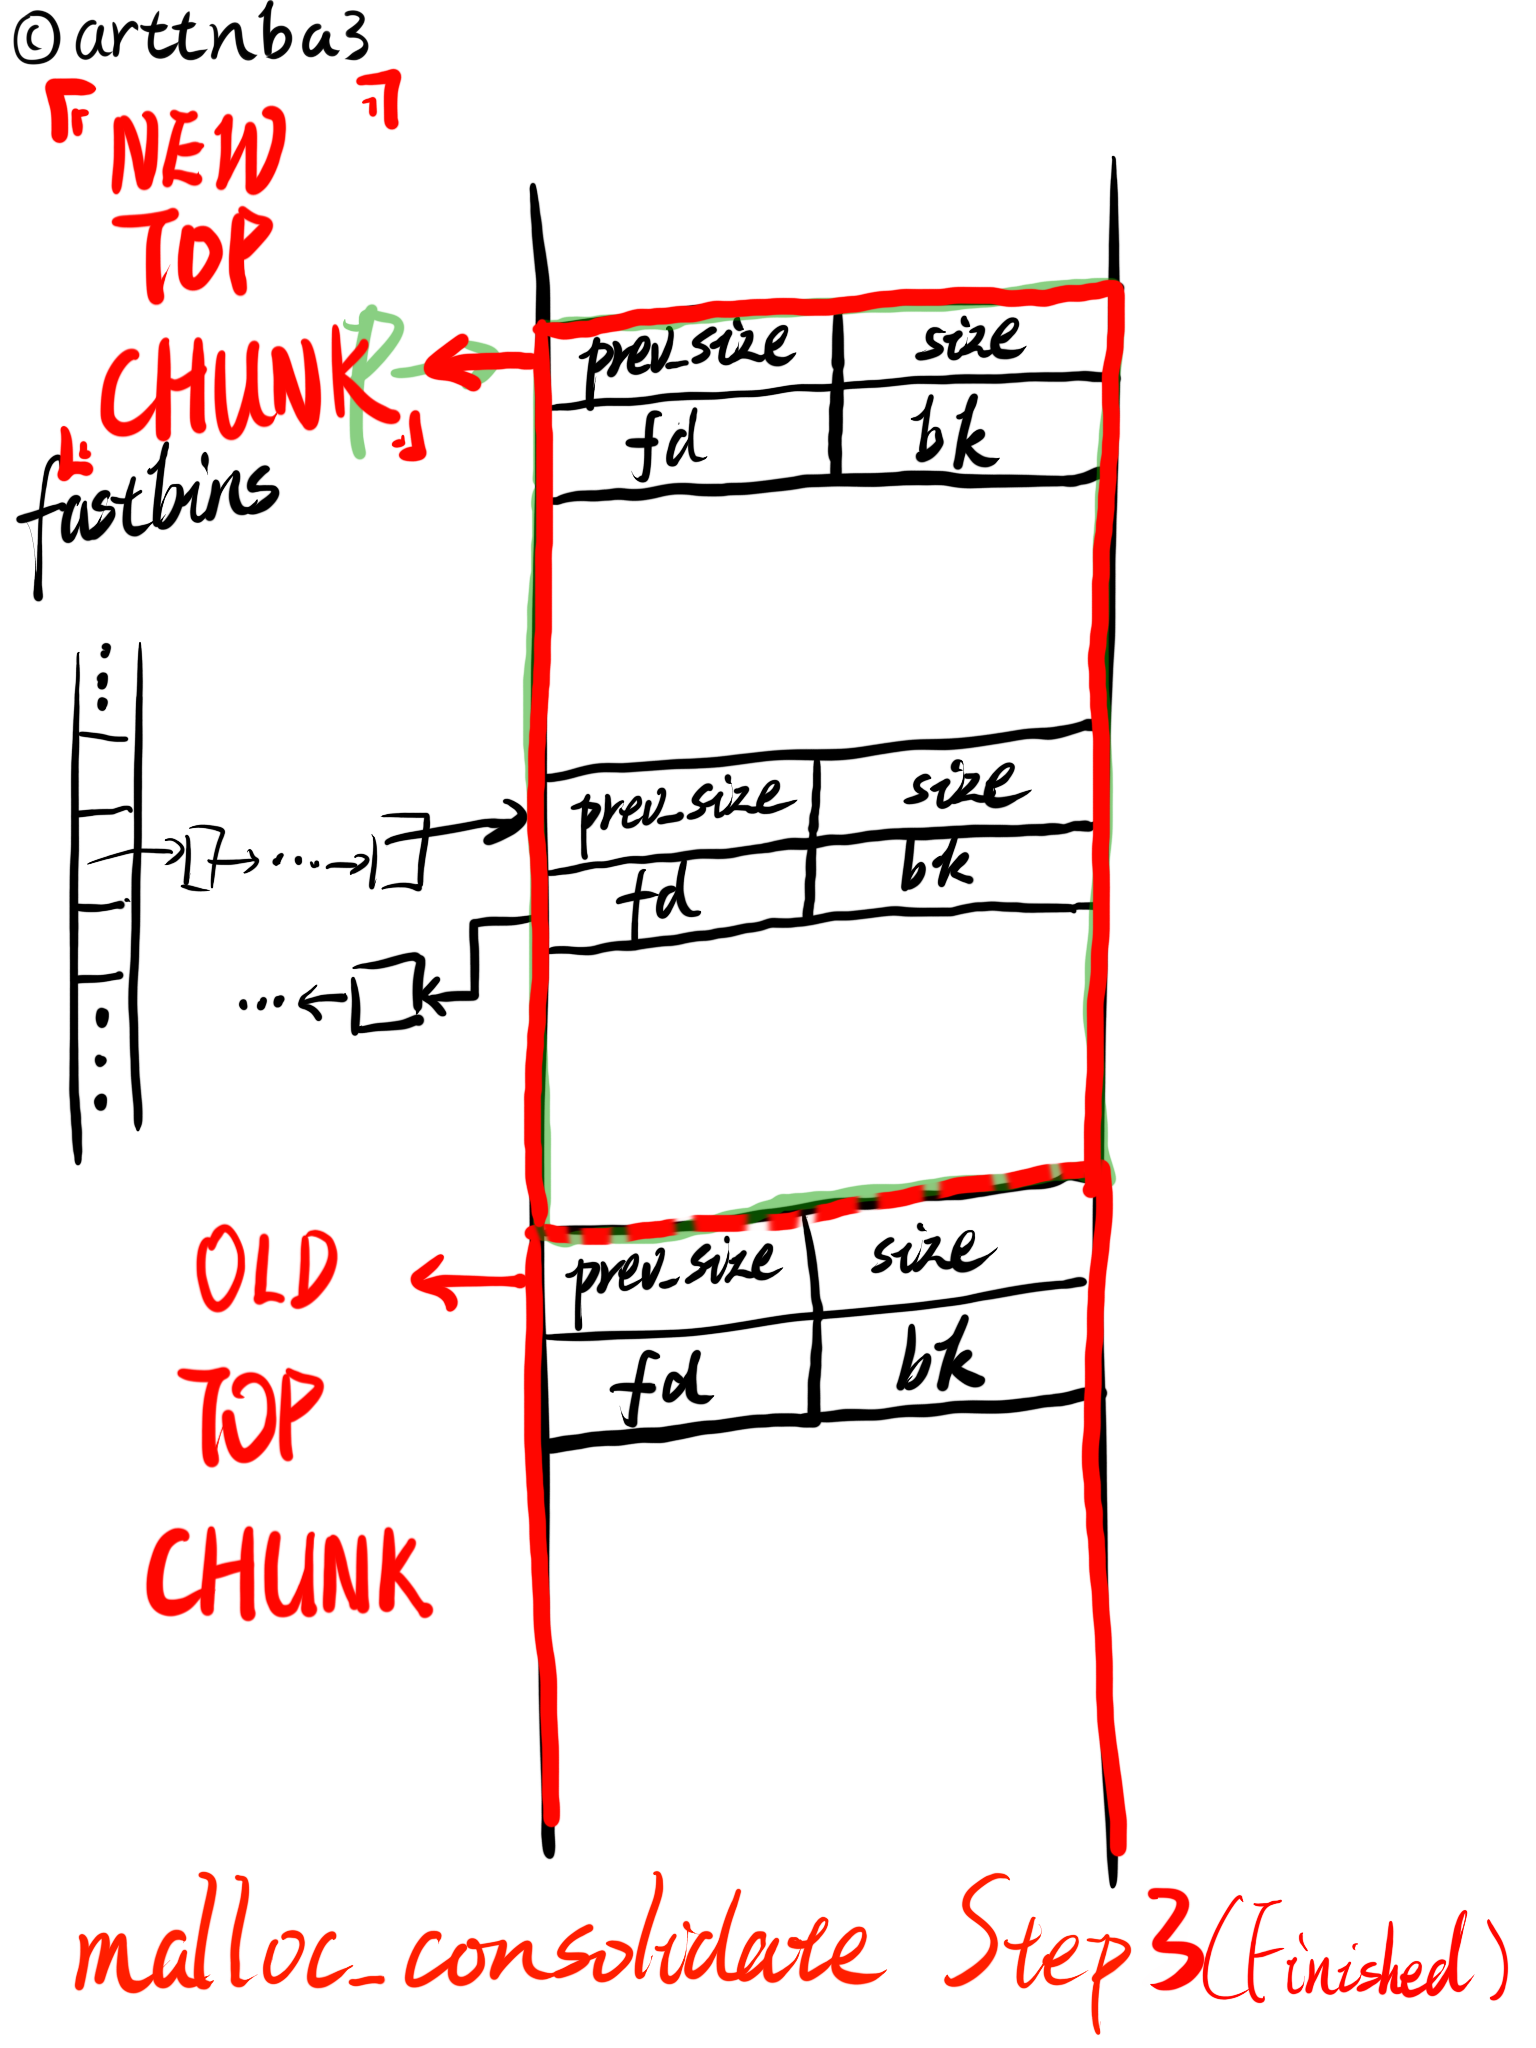 ©arttnba3
『NEW
TOP
CHUNK』
P
fastbins
prev_size size
fd bk
prev_size size
fd bk
OLD
TOP
CHUNK
prev_size size
fd bk
malloc_consolidate Step3(Finished)